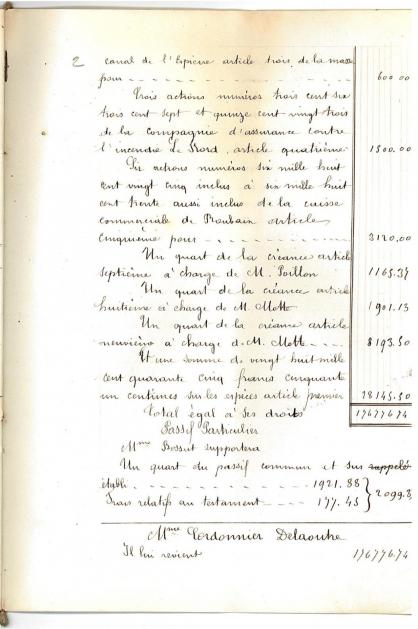 2 canal de l'Espierre article trois de la masse
pour - - - - - - - - - - 600 00
Trois actions numéros trois cent six
trois cent sept et quinze cent vingt trois
de la Compagnie d'assurance contre
l'incendie Le Nord, article quatrième 1500.00
Six actions numéros six mille huit
cent vingt cinq inclus à six mille huit
cent trente aussi inclus de la caisse
commerciale de Roubaix article
cinquième pour - - - - - 3120.00
Un quart de la créance article
septième à charge de M. Poillon 1165.37
Un quart de la créance article
huitième à charge de M. Motte 1901.13
Un quart de la créance article
neuvième à charge de M. Motte - - - 8193.50
Et une somme de vingt huit mille
cent quarante cinq francs cinquante
un centimes sur les espèces article premier 28145.50
Total égal à ses droits 176776 74
Passif Particulier
Mme Bossut supportera
Un quart du passif commun et sus rappelé
établi - - - - - 1921.88
Frais relatifs au testament - - - - 177.45 } 2099.3
Mme Cordonnier Delaoutre
Il lui revient 176776.74